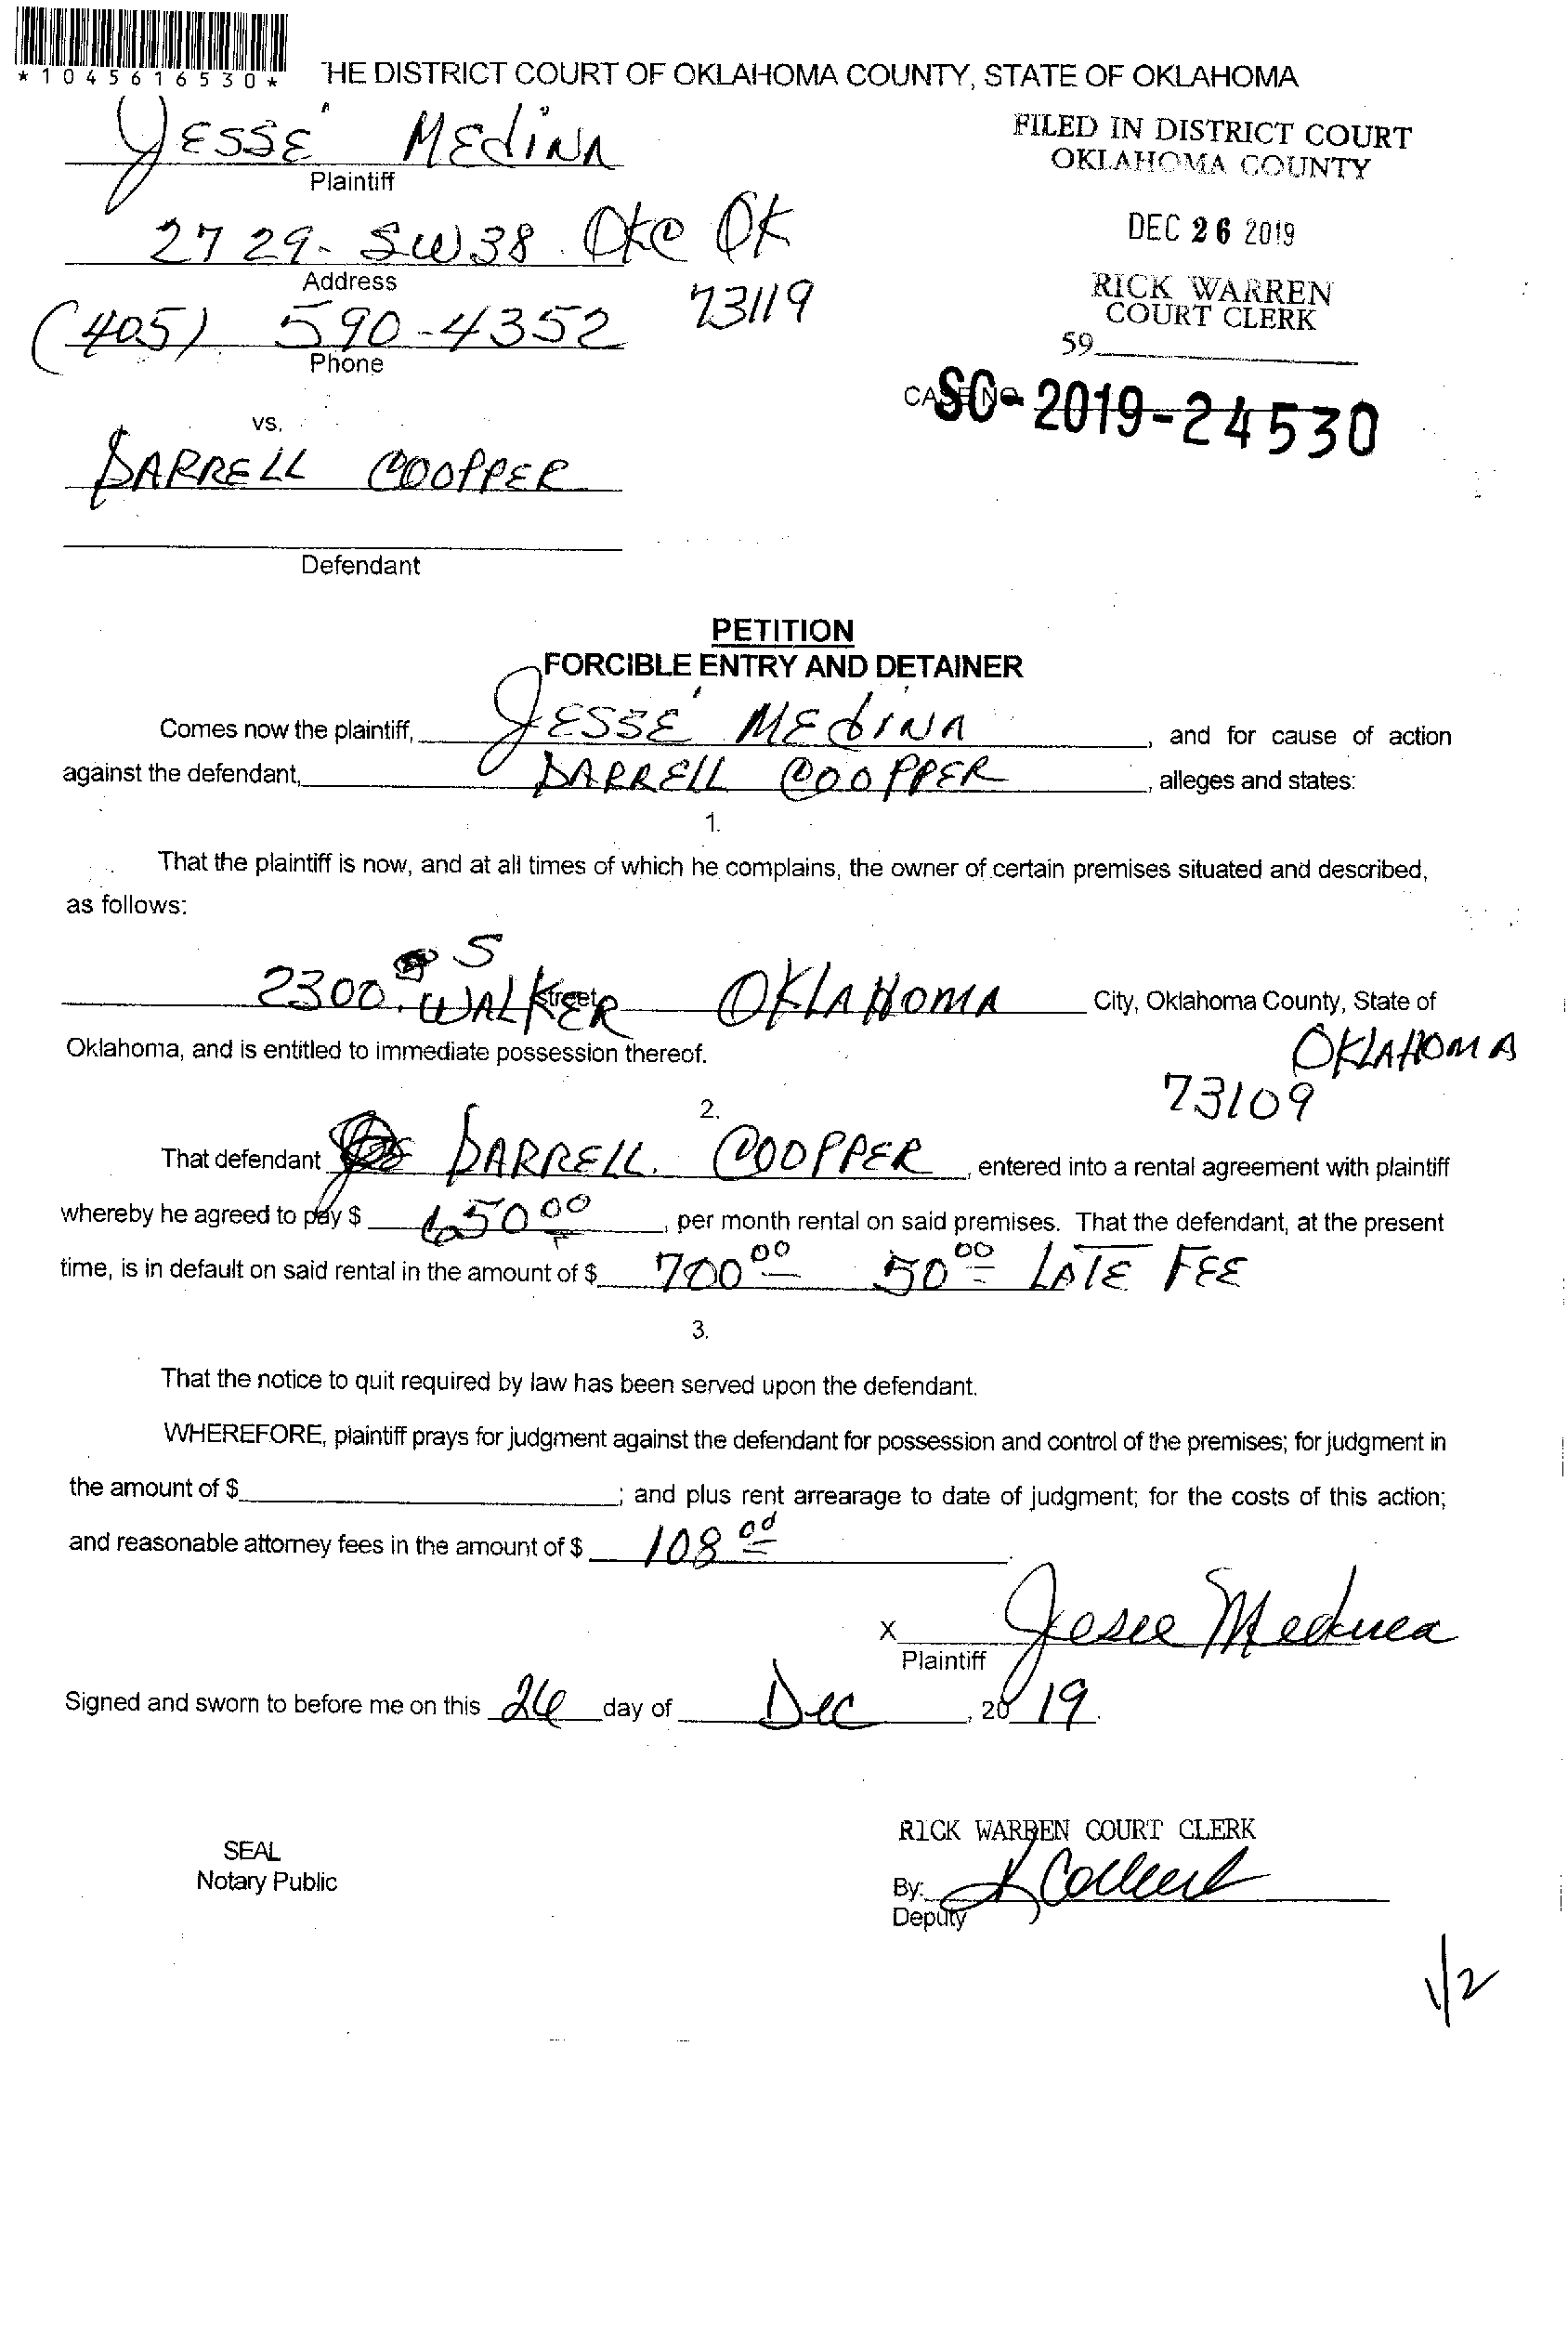 *1045616530*
THE DISTRICT COURT OF OKLAHOMA COUNTY, STATE OF OKLAHOMA
JESSE MEdiNA
Plaintiff
FILED IN DISTRICT COURT
OKLAHOMA COUNTY
2729- SW 38. OKC OK
Address
73119
DEC 26 2019
(405) 590-4352
Phone
RICK WARREN
COURT CLERK
59
vs.
CASE NO.
SC-2019-24530
DARRELL COOPPER
Defendant
PETITION
FORCIBLE ENTRY AND DETAINER
Comes now the plaintiff, JESSE MEdiNA, and for cause of action
against the defendant, DARRELL COOPPER, alleges and states:
1.
That the plaintiff is now, and at all times of which he complains, the owner of certain premises situated and described,
as follows:
2300. S WALKER Street OKLAHOMA City, Oklahoma County, State of
Oklahoma, and is entitled to immediate possession thereof. OKLAHOMA
73109
2.
That defendant DARRELL. COOPPER, entered into a rental agreement with plaintiff
whereby he agreed to pay $ 650 00, per month rental on said premises. That the defendant, at the present
time, is in default on said rental in the amount of $ 700 00 50 00 LATE FEE
3.
That the notice to quit required by law has been served upon the defendant.
WHEREFORE, plaintiff prays for judgment against the defendant for possession and control of the premises; for judgment in
the amount of $ ; and plus rent arrearage to date of judgment; for the costs of this action;
and reasonable attorney fees in the amount of $ 108 00.
x Jesse Medina
Plaintiff
Signed and sworn to before me on this 26 day of Dec, 2019.
SEAL
Notary Public
RICK WARREN COURT CLERK
By:
Deputy
1/2